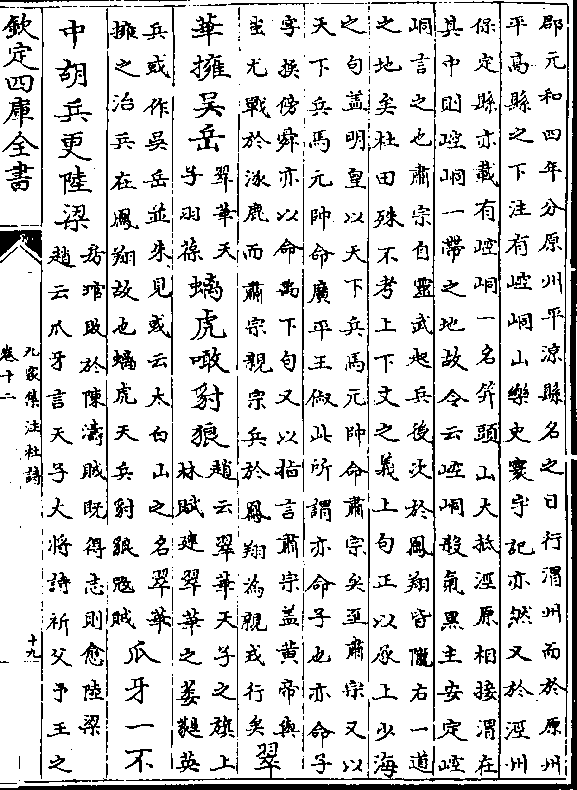 郡元和四年分原州平涼縣名之曰行渭州而於原州
平高縣之下注有崆峒山樂史寰宇記亦然又於涇州
保定縣亦載有崆峒一名笄頭山大抵涇原相接渭在
其中則崆峒一帶之地故今云崆峒殺氣黑主安定崆
峒言之也肅宗自靈武起兵後次於鳳翔皆隴右一道
之地矣杜田殊不考上下文之義上句正以承上少海
之句盖明皇以天下兵馬元帥命肅宗矣至肅宗又以
天下兵馬元帥命廣平王俶此所謂亦命子也亦命子
字換傍舜亦以命禹下句又以指言肅宗盖黄帝與
蚩尤戰於涿鹿而肅宗親宗兵於鳳翔為親戎行矣翠
華擁吳岳翠華天
子羽葆螭虎噉豺狼趙云翠華天子之旂上
林賦建翠華之葳蕤英
兵或作吳岳並未見或云太白山之名翠華
擁之治兵在鳳翔故也螭虎天兵豺狼寇賊爪牙一不
中胡兵更陸梁房琯敗於陳濤賊既得志則愈陸梁
趙云爪牙言天子大將詩祈父予王之
欽定四庫全書
九家集注杜詩
卷十二
十九